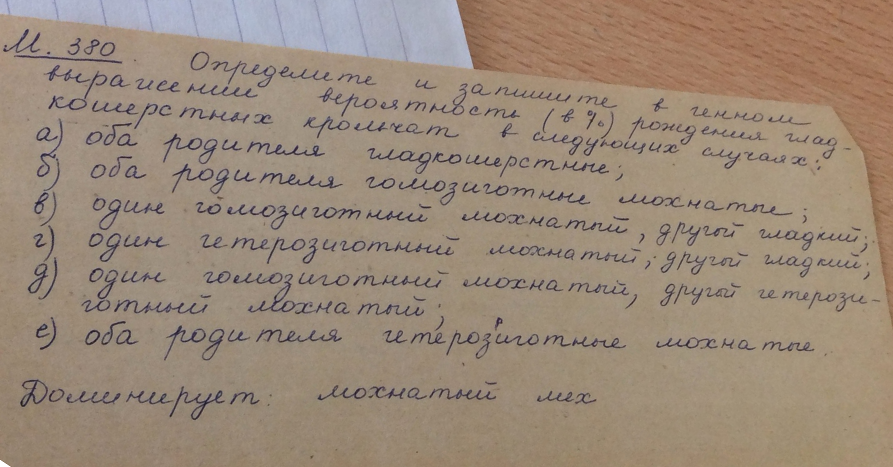 М. 380. Определите и запишите в генном
выражении вероятность (в %) рождения глад-
кошерстных крольчат в следующих случаях:
а) оба родителя гладкошерстные;
б) оба родителя гомозиготные мохнатые;
в) один гомозиготный мохнатый, другой гладкий;
г) один гетерозиготный мохнатый, другой гладкий;
д) один гомозиготный мохнатый, другой гетерози-
готный мохнатый;
е) оба родителя гетерозиготные мохнатые.
Доминирует: мохнатый мех